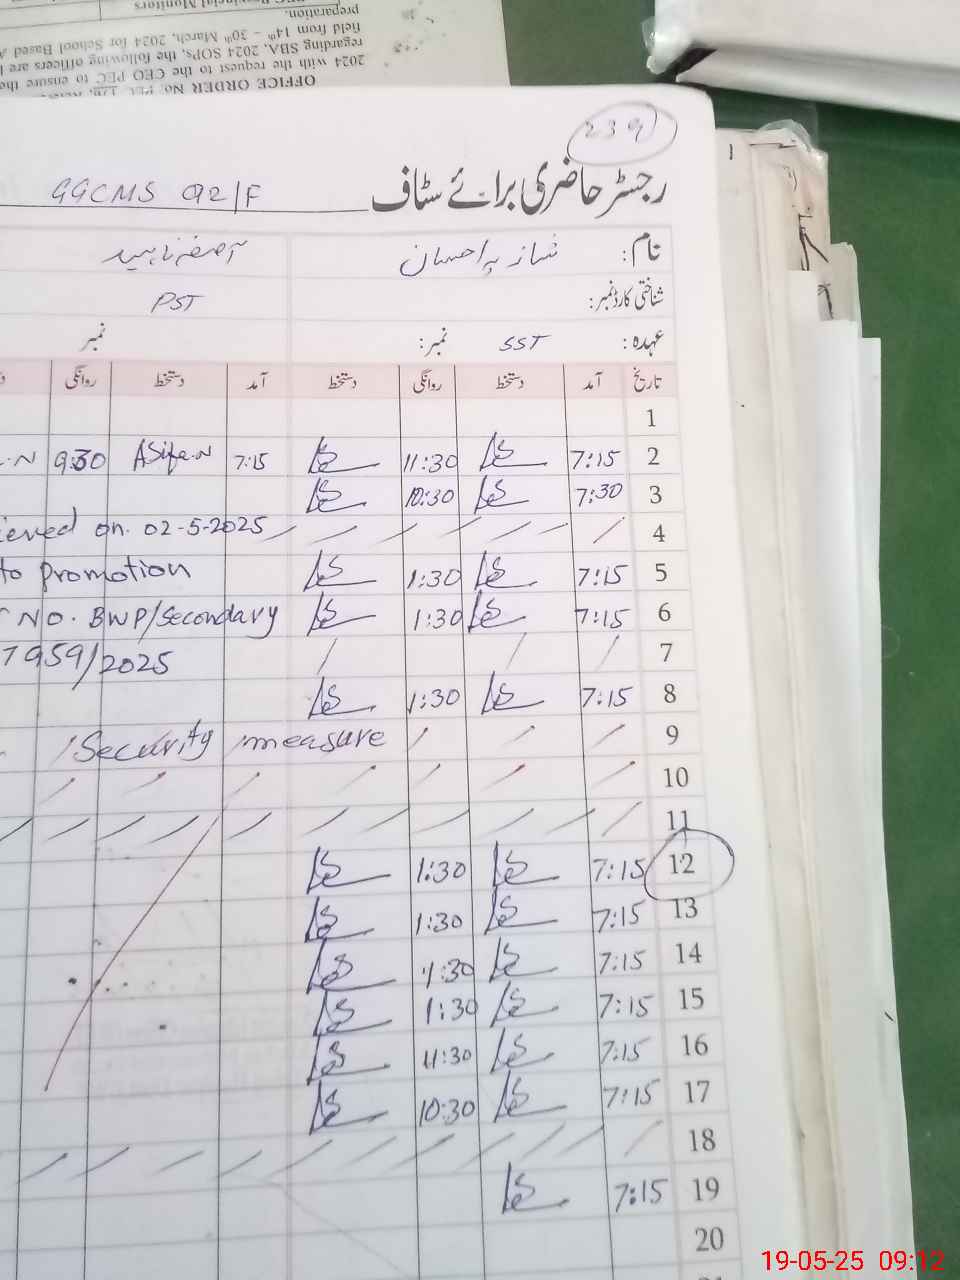 OFFICE ORDER No. PEC
2024 with the request to the CEO PEC to ensure the
regarding SBA, 2024 SOPs, the following officers are
field from 14th - 30th March, 2024 for School Based
preparation.
Provincial Monitors
239
رجسٹر حاضری برائے سٹاف
GGCMS 92/F
نام: شازیہ احسان آصفہ ناہید
شناختی کارڈ نمبر: PST
عہدہ: SST نمبر: نمبر
تاریخ آمد دستخط روانگی دستخط آمد دستخط روانگی
1
2 7:15 11:30 7:15 Asifa.N 9:30 .N
3 7:30 10:30
4 ieved on. 02-5-2025
5 7:15 1:30 to promotion
6 7:15 1:30 NO. BWP/Secondary
7 7959/2025
8 7:15 1:30
9 Security measure
10
11
12 7:15 1:30
13 7:15 1:30
14 7:15 1:30
15 7:15 1:30
16 7:15 11:30
17 7:15 10:30
18
19 7:15
20
19-05-25 09:12